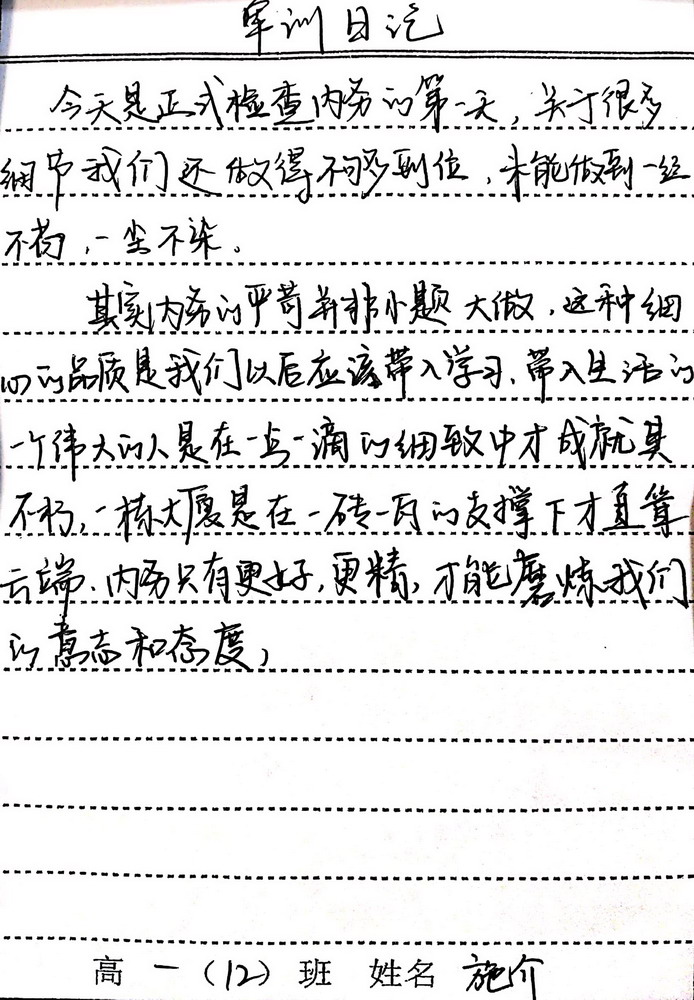 军训日记
今天是正式检查内务的第一天，关于很多
细节我们还做得不够到位，未能做到一丝
不苟，一尘不染。
其实内务的严苛并非小题大做，这种细
心的品质是我们以后应该带入学习、带入生活的
一个伟大的人是在一点一滴的细致中才成就其
不朽，一栋大厦是在一砖一瓦的支撑下才直耸
云端、内务只有更好，更精，才能磨炼我们
的意志和态度，
高一（12）班 姓名 施介